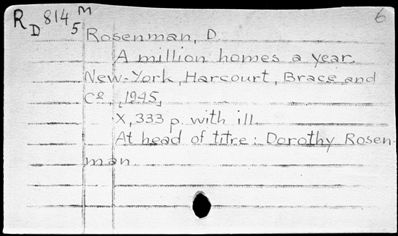 R D 814 5 M
6
Rosenman, D.
A million homes a year.
New-York, Harcourt, Brace and
Co, 1945,
X, 333 p. with ill.
At head of titre: Dorothy Rosen-
man